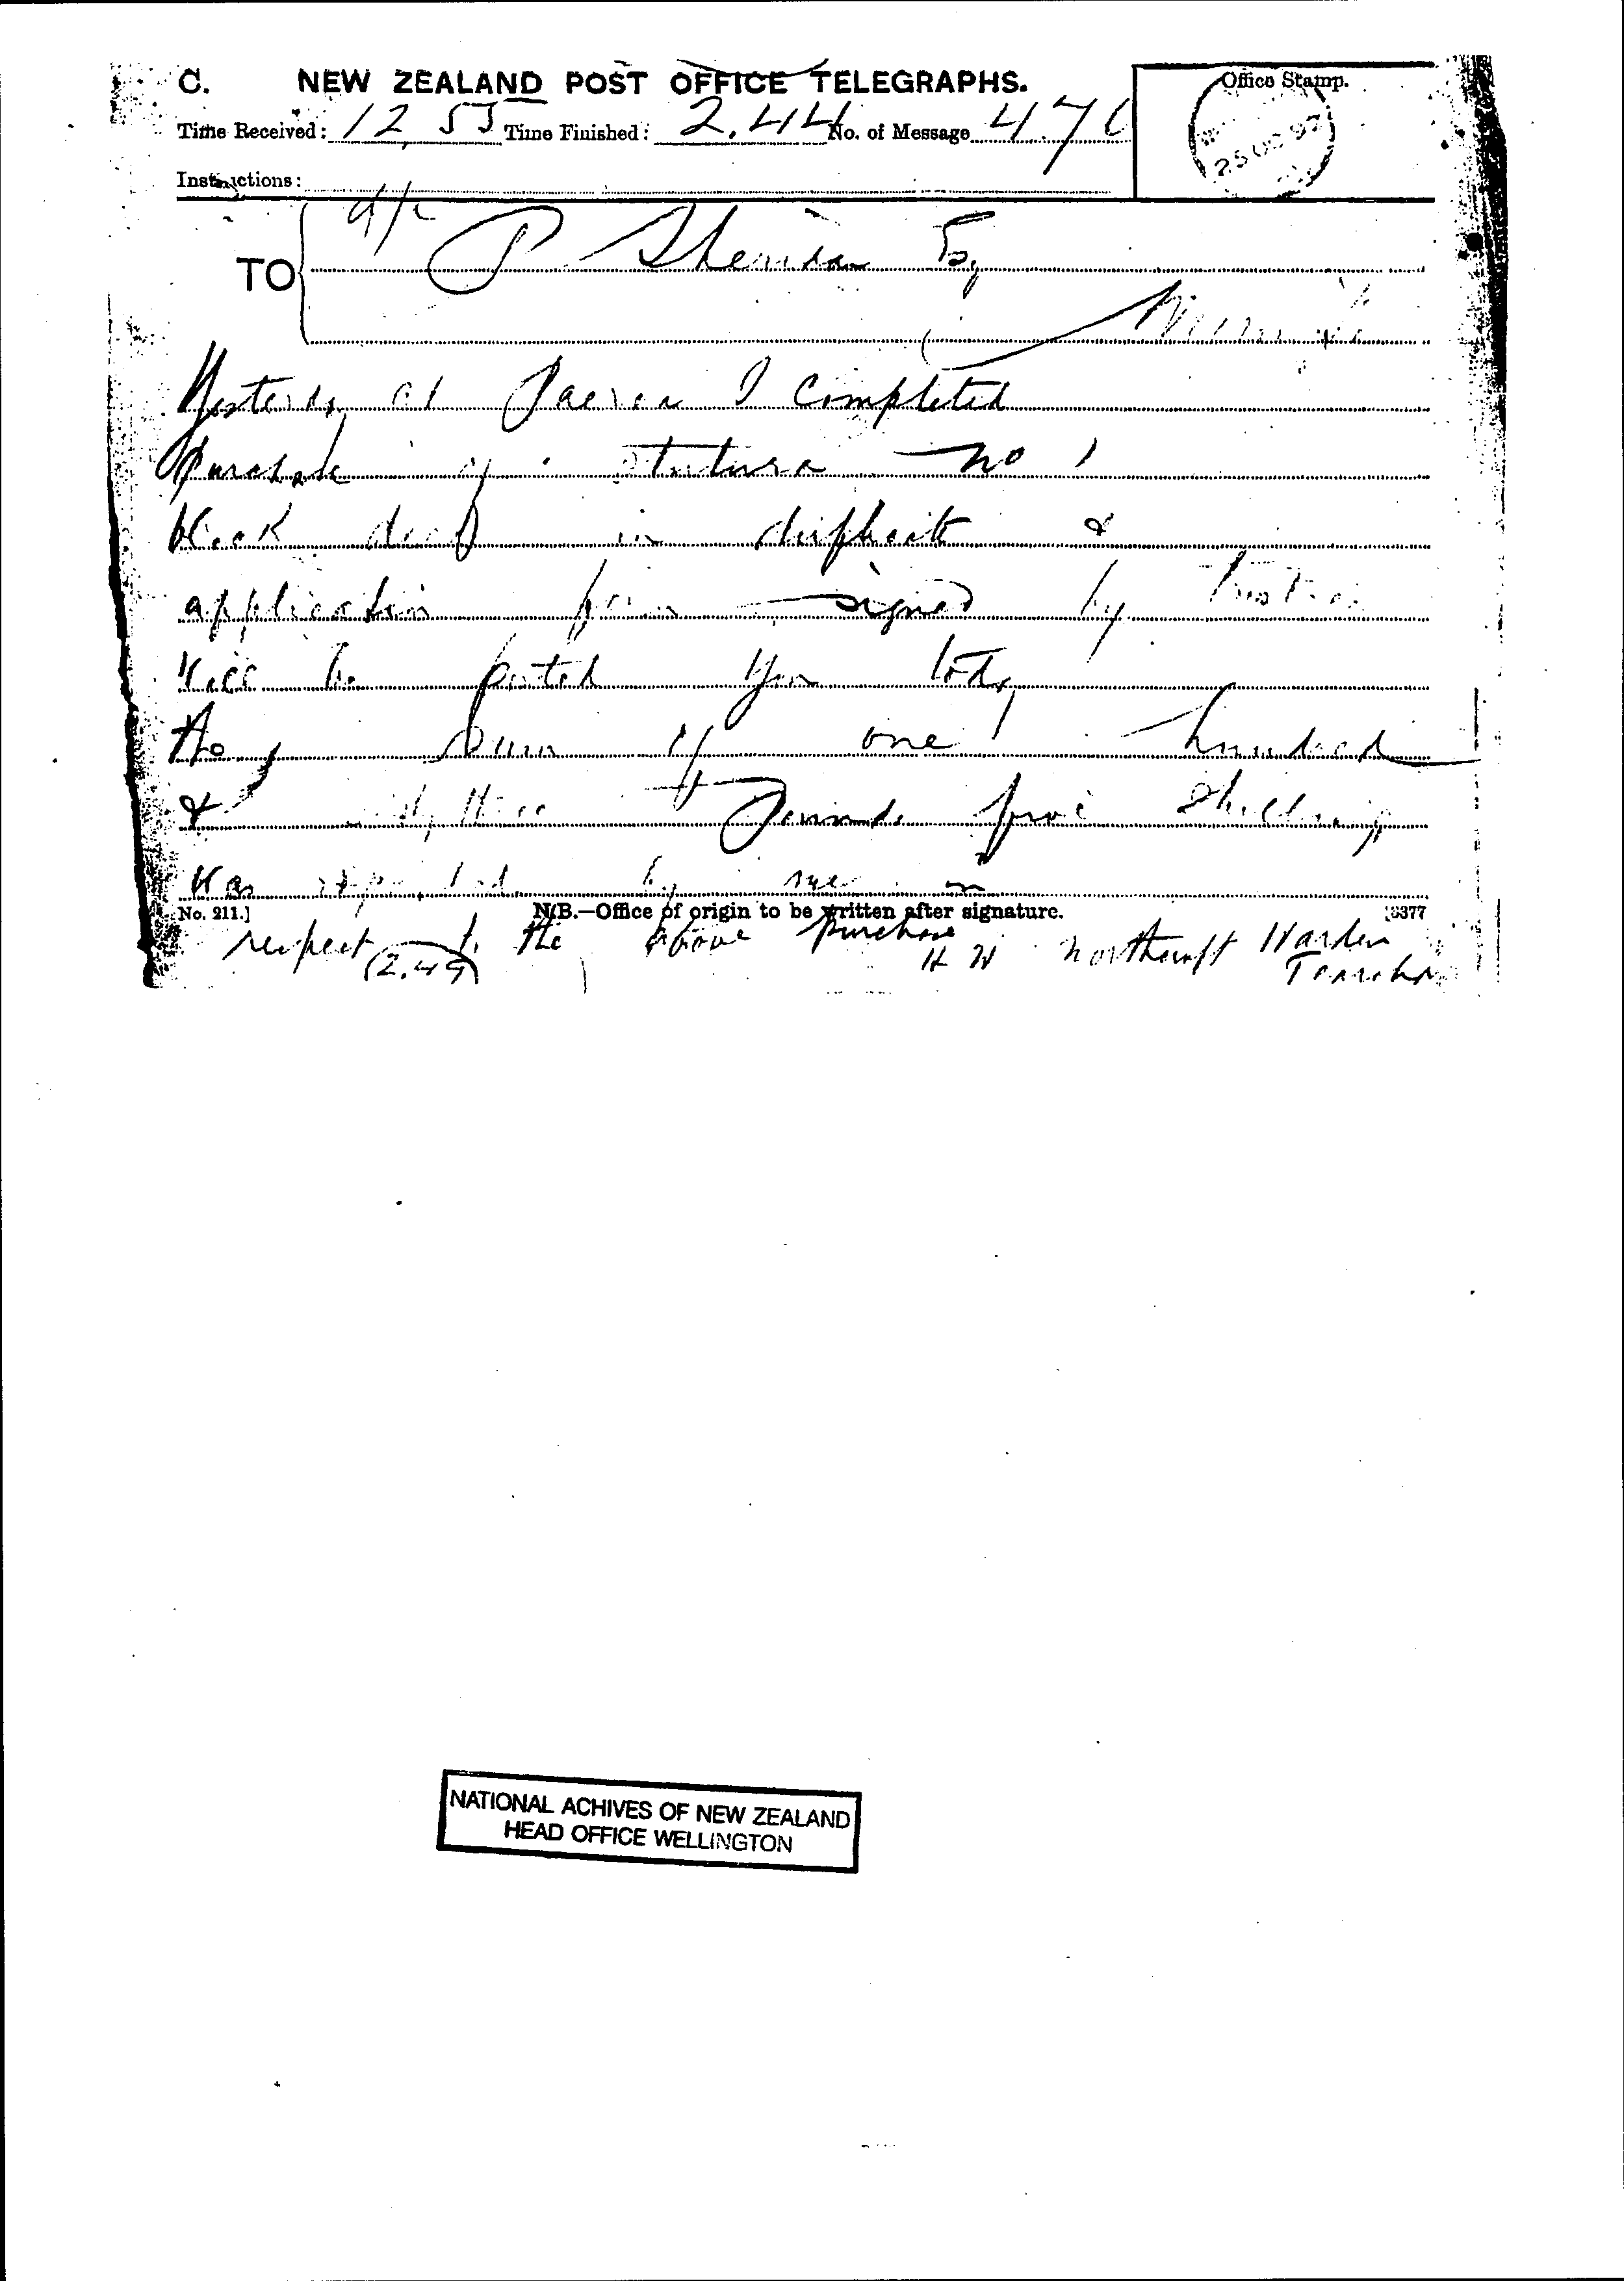 C. NEW ZEALAND POST OFFICE TELEGRAPHS.
Office Stamp.
Time Received: 12.55 Time Finished: 2.44 No. of Message 471
25 97
Instructions:
TO
P Sheridan Esq
Yesterday at Paeroa I completed
purchase of no 1
block deed in duplicate &
application form signed by
will be posted you today
the sum of one hundred
& pounds five shillings
was by me in
No. 211.] N.B.—Office of origin to be written after signature.
respect to the above purchase
(2.49)
H W Northcroft Warden
NATIONAL ACHIVES OF NEW ZEALAND
HEAD OFFICE WELLINGTON